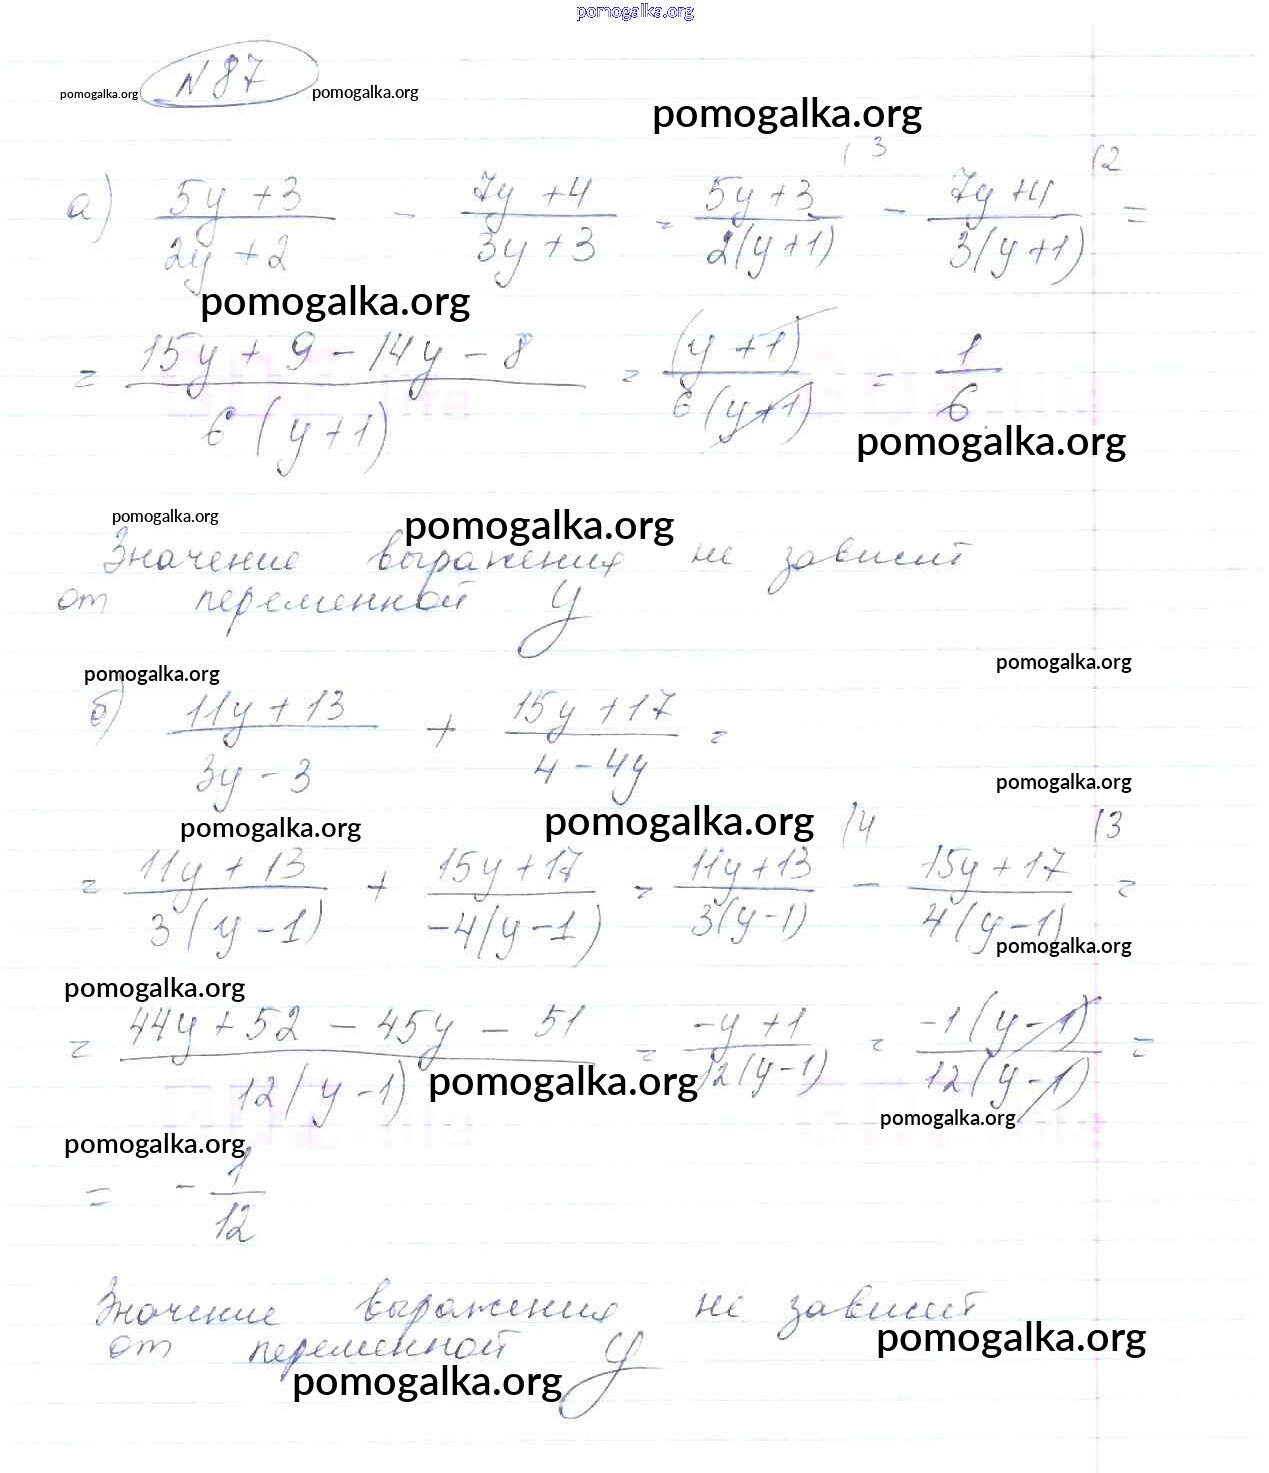 pomogalka.org
N 87
pomogalka.org pomogalka.org
pomogalka.org
а) (5y + 3)/(2y + 2) - (7y + 4)/(3y + 3) = (5y + 3)/(2(y + 1)) (3 - (7y + 4)/(3(y + 1)) (2 =
pomogalka.org
= (15y + 9 - 14y - 8)/(6(y + 1)) = (y + 1)/(6(y + 1)) = 1/6
pomogalka.org
pomogalka.org pomogalka.org
Значение выражения не зависит
от переменной y
pomogalka.org pomogalka.org
б) (11y + 13)/(3y - 3) + (15y + 17)/(4 - 4y) =
pomogalka.org
pomogalka.org pomogalka.org
= (11y + 13)/(3(y - 1)) + (15y + 17)/(-4(y - 1)) = (11y + 13)/(3(y - 1)) (4 - (15y + 17)/(4(y - 1)) (3 =
pomogalka.org
pomogalka.org
= (44y + 52 - 45y - 51)/(12(y - 1)) = (-y + 1)/(12(y - 1)) = (-1(y - 1))/(12(y - 1)) =
pomogalka.org
pomogalka.org
pomogalka.org
= - 1/12
Значение выражения не зависит
от переменной y
pomogalka.org
pomogalka.org